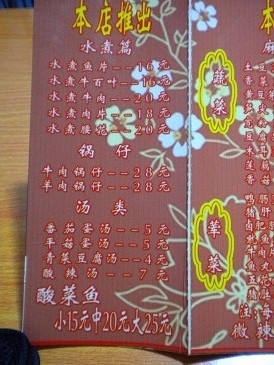 本店推出
水煮篇
水煮鱼片--16元
水煮牛百叶--16元
水煮牛肉--20元
水煮肉片--18元
水煮腰花--20元
锅仔
牛肉锅仔--28元
羊肉锅仔--28元
汤类
番茄蛋汤--5元
平菇蛋汤--5元
青菜豆腐汤--4元
酸辣汤--7元
酸菜鱼
小15元中20元大25元
蔬菜
荤菜